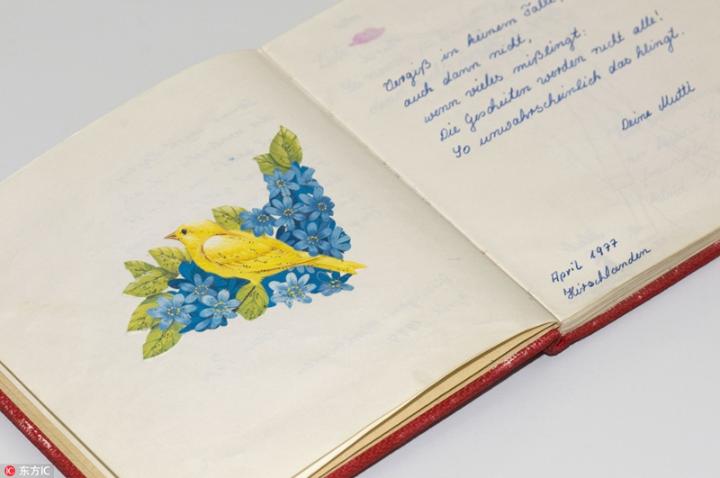 Vergiß in keinem Falle,
auch dann nicht,
wenn vieles mißlingt:
Die Gescheiten werden nicht alle!
So unwahrscheinlich das klingt.
Deine Mutti
April 1977
Hirschlanden
东方IC